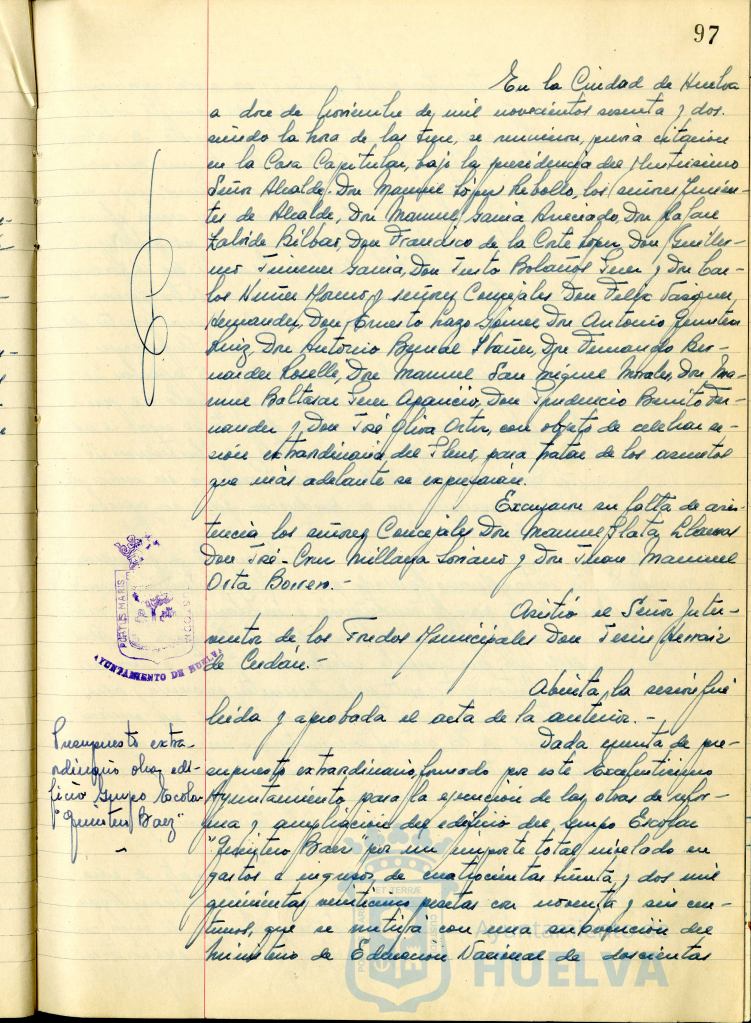 97
En la Ciudad de Huelva
a doce de Noviembre de mil novecientos sesenta y dos.
siendo la hora de las trece, se reunieron, previa citación
en la Casa Capitular, bajo la presidencia del Ilustrísimo
Señor Alcalde. Don Manuel López Rebollo, los señores Tenien-
tes de Alcalde, Don Manuel García Don Rafael
Bilbao, Don Francisco de la Corte López, Don Guiller-
mo Jimenez García, Don Justo Bolaños Perez y Don Car-
los Núñez Moreno y señores Concejales Don Felix Vazquez
Hernandez, Don Ernesto Lazo Gómez Don Antonio Quintero
Ruiz, Don Antonio Bernal Ibañez, Don Fernando Ber-
nardez Roselle, Don Manuel San Miguel Morales, Don Ma-
nuel Baltasar Perez Aparicio, Don Prudencio Benito Fer-
nandez y Don José Oliva Ortiz, con objeto de celebrar se-
sión extraordinaria del Pleno, para tratar de los asuntos
que más adelante se expresarán.
Excusaron su falta de asis-
tencia los señores Concejales Don Manuel Plata Llamas
Don José-Cruz Millana Soriano y Don Juan Manuel
Orta Borrero.-
Asistió el Señor Inter-
ventor de los Fondos Municipales Don Jesús Herraiz
de Cerdán.-
Abierta la sesión fué
leída y aprobada el acta de la anterior.-
Dada cuenta de pre-
supuesto extraordinario, formado por este Excelentísimo
Ayuntamiento para la ejecución de las obras de refor-
ma y ampliación del edificio del Grupo Escolar
"Quintero Baez" por un importe total nivelado en
gastos e ingresos de cuatrocientas treinta y dos mil
quinientas veinticinco pesetas con noventa y seis cen-
timos, que se nutrirá con una subvención del
Ministerio de Educación Nacional de doscientas
PORTUS MARIS
CUSTODIA
AYUNTAMIENTO DE HUELVA
Presupuesto extra-
ordinario obras edi-
ficio Grupo Escolar
"Quintero Baez"
Ayuntamiento
HUELVA